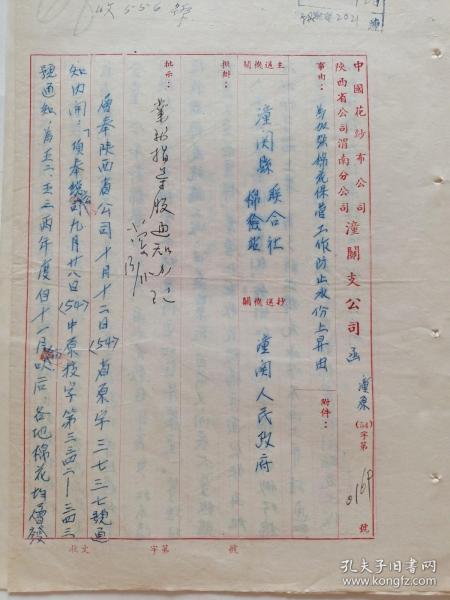 收556号
中國花紗布公司
陝西省公司渭南分公司
潼關支公司函
潼原(54)字第
號
事由：
為加強棉花保管工作防止水份上昇由
附件：
主送機關
潼関縣
联合社
棉檢站
抄送機關
潼関人民政府
擬辦：
批示：
業務指導股通知
層奉陝西省公司十月十二日〈54〉省原字三七三七號通
知內開：「頃奉總公司九月廿八日〈54〉中原技字第三三四二－三四三
號通知：為五二、五三兩年度自十一月以后，各地棉花均層發
收文
字第
號
孔夫子旧书网